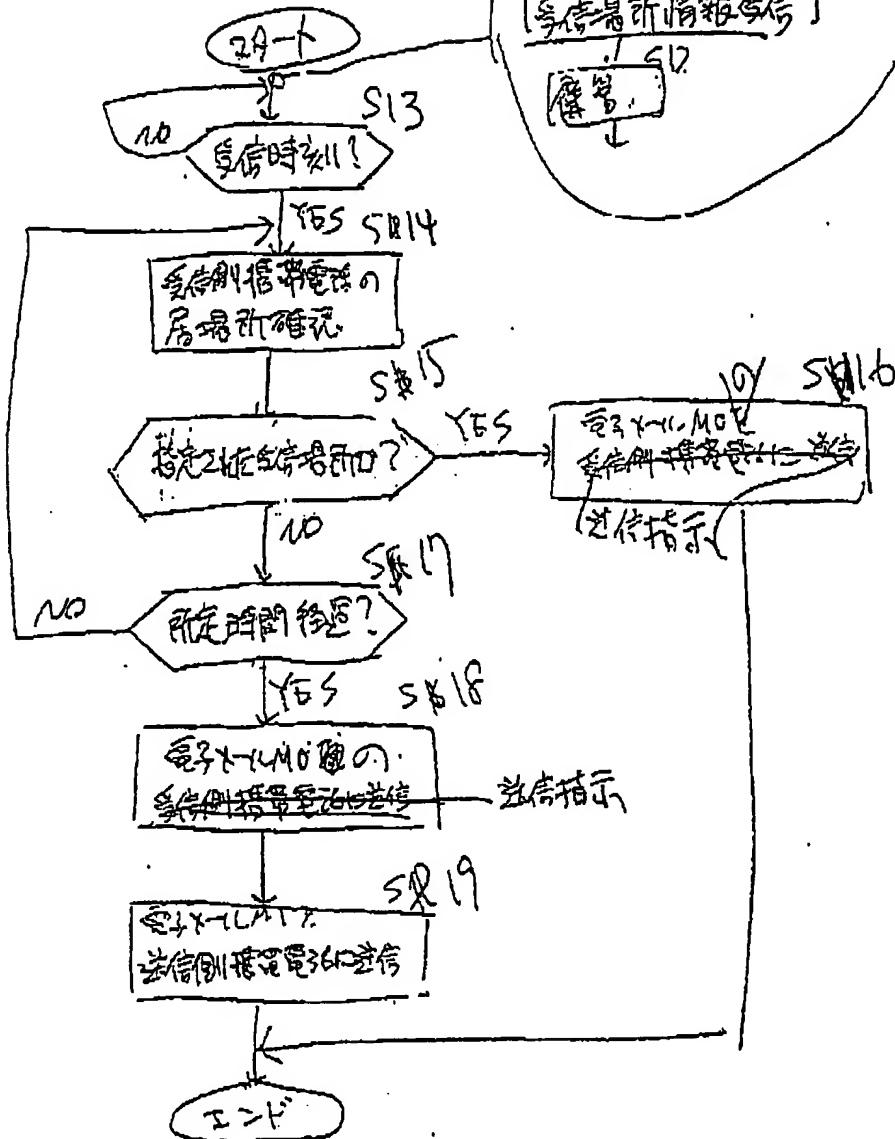 受信場所情報受信
S12
スタート
S13
NO
受信時刻?
YES
S14
受信側携帯電話の
居場所確認
S15
指定された受信場所か?
YES
S16
電子メールM0の
受信側携帯電話に送信
送信指示
NO
S17
所定時間経過?
NO
YES
S18
電子メールM0の
受信側携帯電話に送信
送信指示
S19
電子メールM1を
送信側携帯電話に送信
エンド